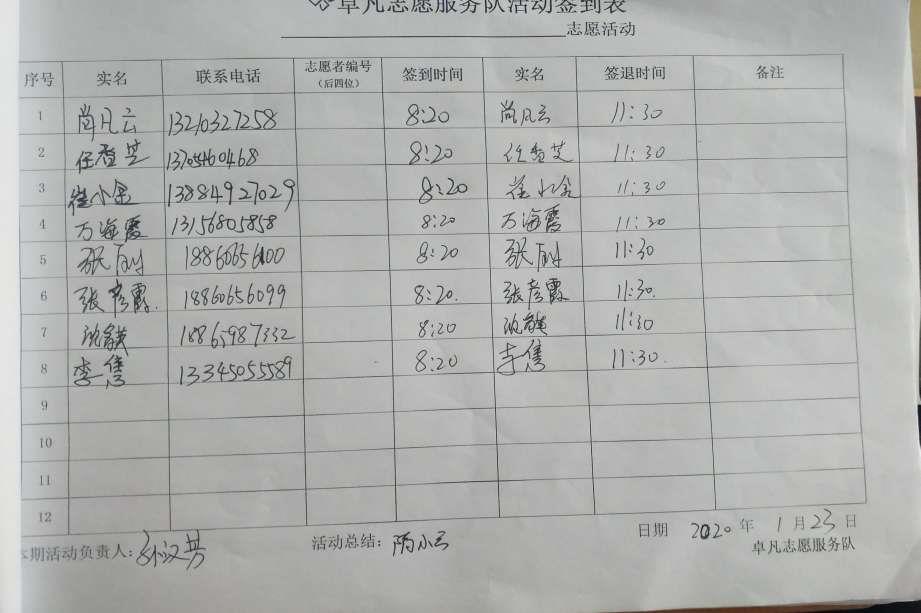 卓凡志愿服务队活动签到表
志愿活动
序号 实名 联系电话 志愿者编号（后四位） 签到时间 实名 签退时间 备注
1 尚凡云 13210327258 8:20 尚凡云 11:30
2 任 芝 13705460468 8:20 任 11:30
3 崔小金 13884927029 8:20 崔小金 11:30
4 万海霞 13156805858 8:20 万海霞 11:30
5 张 18860656100 8:20 张 11:30
6 张彦霞. 18860656099 8:20. 张彦霞 11:30.
7 18865987332 8:20 11:30
8 李隽 13345055589 8:20 李隽 11:30.
9
10
11
12
本期活动负责人: 孙汉芳 活动总结: 隋小云 日期 2020 年 1 月 23 日
卓凡志愿服务队